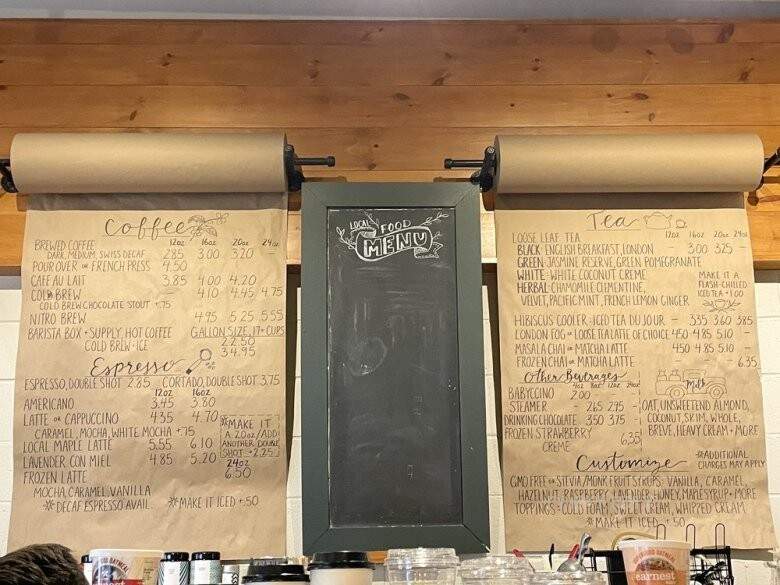 Coffee
12oz 16oz 20oz 24oz
BREWED COFFEE
DARK, MEDIUM, SWISS DECAF 2.85 3.00 3.20 -
POUR OVER OR FRENCH PRESS 4.50
CAFE AU LAIT 3.85 4.00 4.20
COLD BREW 4.10 4.45 4.75
COLD BREW CHOCOLATE STOUT +.75
NITRO BREW 4.95 5.25 5.55
BARISTA BOX + SUPPLY, HOT COFFEE GALLON SIZE, 17+ CUPS
22.50
COLD BREW + ICE 34.95
Espresso
ESPRESSO, DOUBLE SHOT 2.85 CORTADO, DOUBLE SHOT 3.75
12oz 16oz
AMERICANO 3.45 3.80
LATTE OR CAPPUCCINO 4.35 4.70
CARAMEL, MOCHA, WHITE MOCHA +.75
LOCAL MAPLE LATTE 5.55 6.10
LAVENDER CON MIEL 4.85 5.20
*MAKE IT
A 20oz/ADD
ANOTHER DOUBLE
SHOT +2.25
24oz
FROZEN LATTE 6.50
MOCHA, CARAMEL, VANILLA
*DECAF ESPRESSO AVAIL. *MAKE IT ICED +.50
LOCAL FOOD
MENU
Tea
12oz 16oz 20oz 24oz
LOOSE LEAF TEA
BLACK: ENGLISH BREAKFAST, LONDON 3.00 3.25 -
GREEN: JASMINE, RESERVE, GREEN POMEGRANATE
WHITE: WHITE COCONUT CREME
HERBAL: CHAMOMILE CLEMENTINE,
VELVET, PACIFIC MINT, FRENCH LEMON GINGER
MAKE IT A
FLASH-CHILLED
ICED TEA +1.00
HIBISCUS COOLER OR ICED TEA DU JOUR - 3.35 3.60 3.85
LONDON FOG OR LOOSE TEA LATTE OF CHOICE 4.50 4.85 5.10 -
MASALA CHAI OR MATCHA LATTE 4.50 4.85 5.10 -
FROZEN CHAI OR MATCHA LATTE 6.35
Other Beverages
8oz 12oz 24oz
BABYCCINO 2.00
STEAMER - 2.65 2.95 -
DRINKING CHOCOLATE 3.50 3.75 -
FROZEN STRAWBERRY 6.35
CREME
Milk
OAT, UNSWEETEND ALMOND,
COCONUT, SKIM, WHOLE,
BREVE, HEAVY CREAM + MORE
Customize
*ADDITIONAL
CHARGES MAY APPLY
GMO FREE OR STEVIA/MONK FRUIT SYRUPS: VANILLA, CARAMEL,
HAZELNUT, RASPBERRY, LAVENDER, HONEY, MAPLE SYRUP + MORE
TOPPINGS = COLD FOAM, SWEET CREAM, WHIPPED CREAM
*MAKE IT ICED +.50
earnest